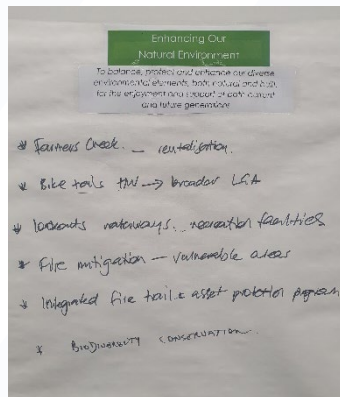 Enhancing Our
Natural Environment
To balance, protect and enhance our diverse
environmental elements, both natural and built,
for the enjoyment and support of both current
and future generations
* Farmers Creek. — revitalisation.
* Bike trails → broader LGA
* lookouts waterways. recreation facilities
* Fire mitigation — vulnerable areas
* Integrated fire trail & asset protection program
* BIODIVERSITY CONSERVATION.